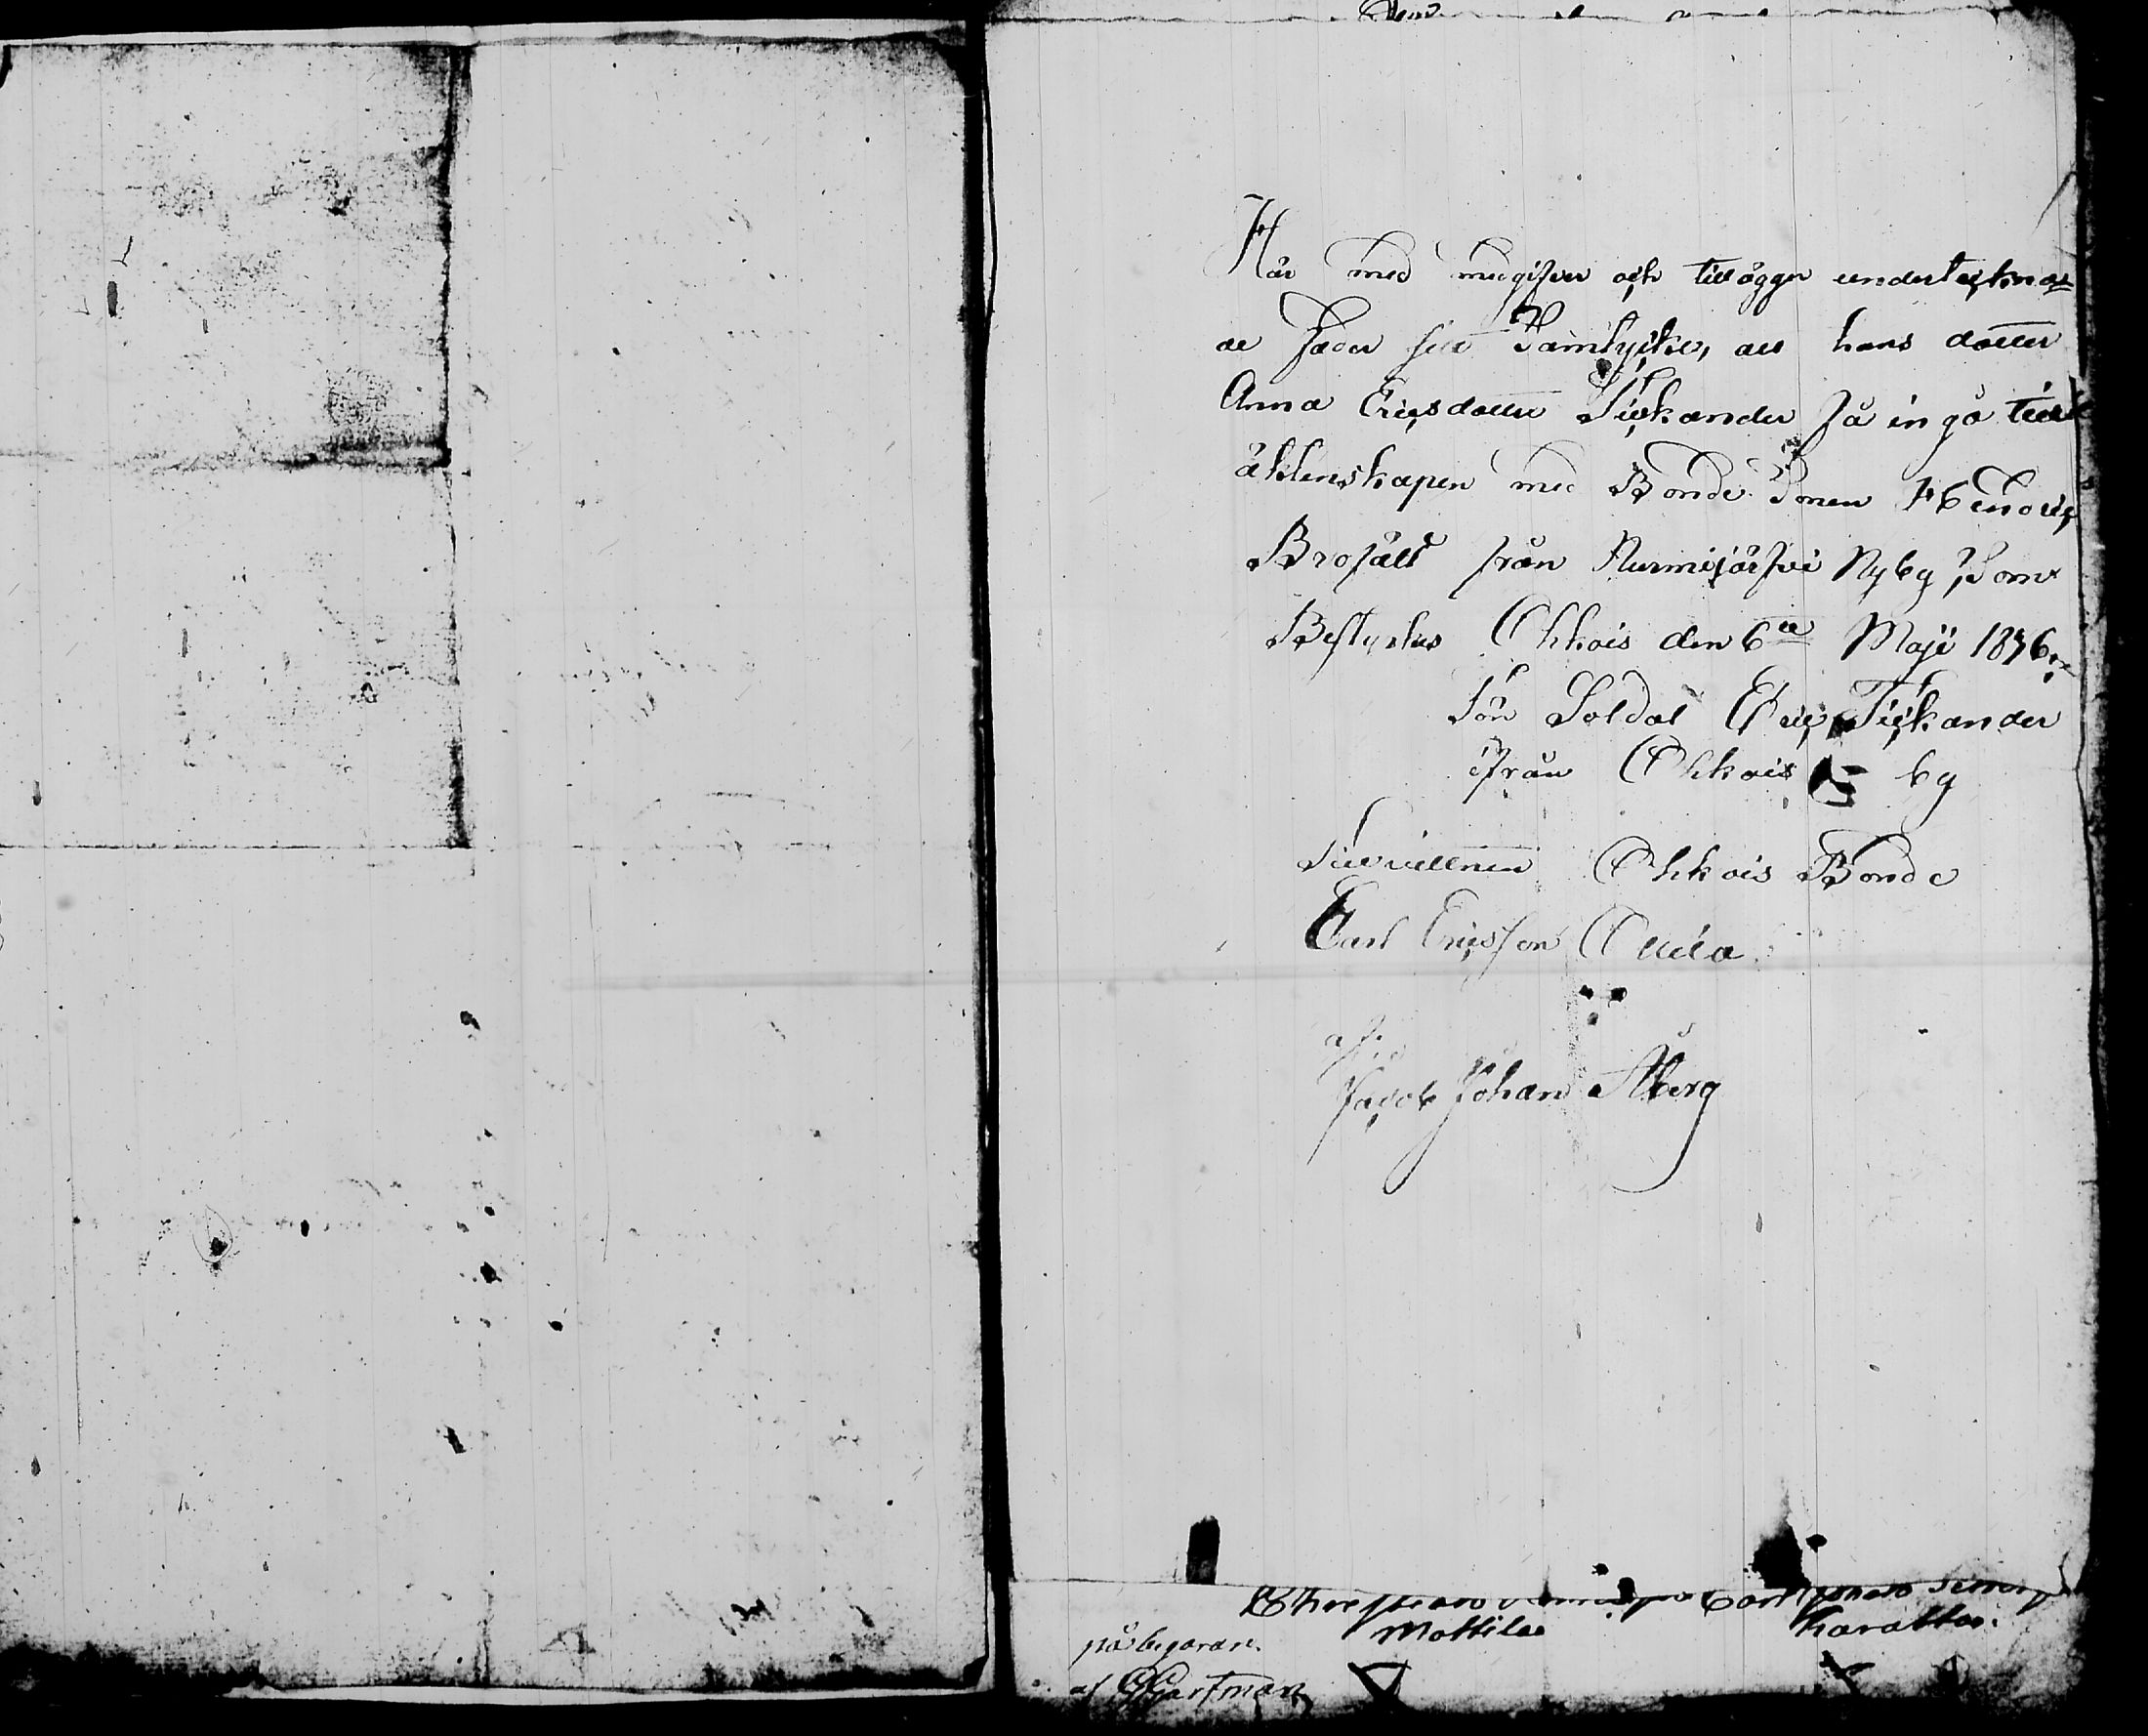 Här med medgifver och tillägger underteckna=
de Fader sitt Samtycke, att hans dotter
Anna Ericsdotter Tickander få ingå till
äktenskapen med Bonde Sonen Hendric
Brofält från Nurmijärfvi Nyby, Som
Bestyrkes Ohkois den 6te Maji 1836.
För Soldat Eric Tickander
ifrån Ohkois by
Till vittnen Ohkois Bonde
Carl Ericsson Ollila
af.
Jacob Johan Åberg
Carl
Mattila Karatta.
på begäran.
af Hartman